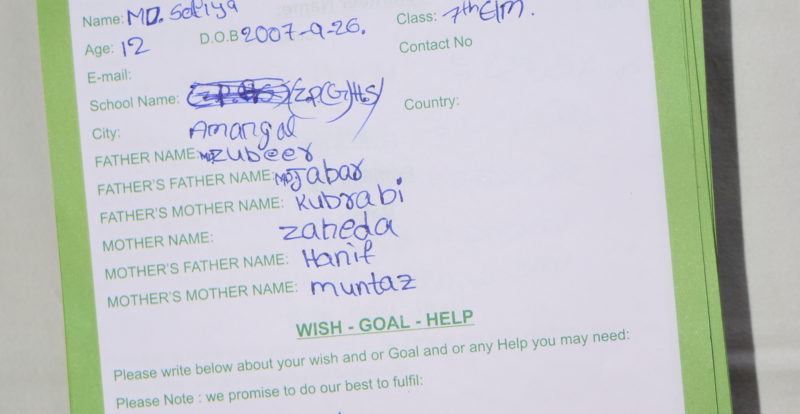 Name: MD. Sofiya Class: 7th E/M.
Age: 12 D.O.B 2007-9-26. Contact No
E-mail:
School Name: (Z.P(G)HS) Country:
City: Amangal
FATHER NAME: MD. Zubeer
FATHER'S FATHER NAME: MD. Jabar
FATHER'S MOTHER NAME: Kubrabi
MOTHER NAME: Zaheda
MOTHER'S FATHER NAME: Hanif
MOTHER'S MOTHER NAME: muntaz
WISH - GOAL - HELP
Please write below about your wish and or Goal and or any Help you may need:
Please Note : we promise to do our best to fulfil: